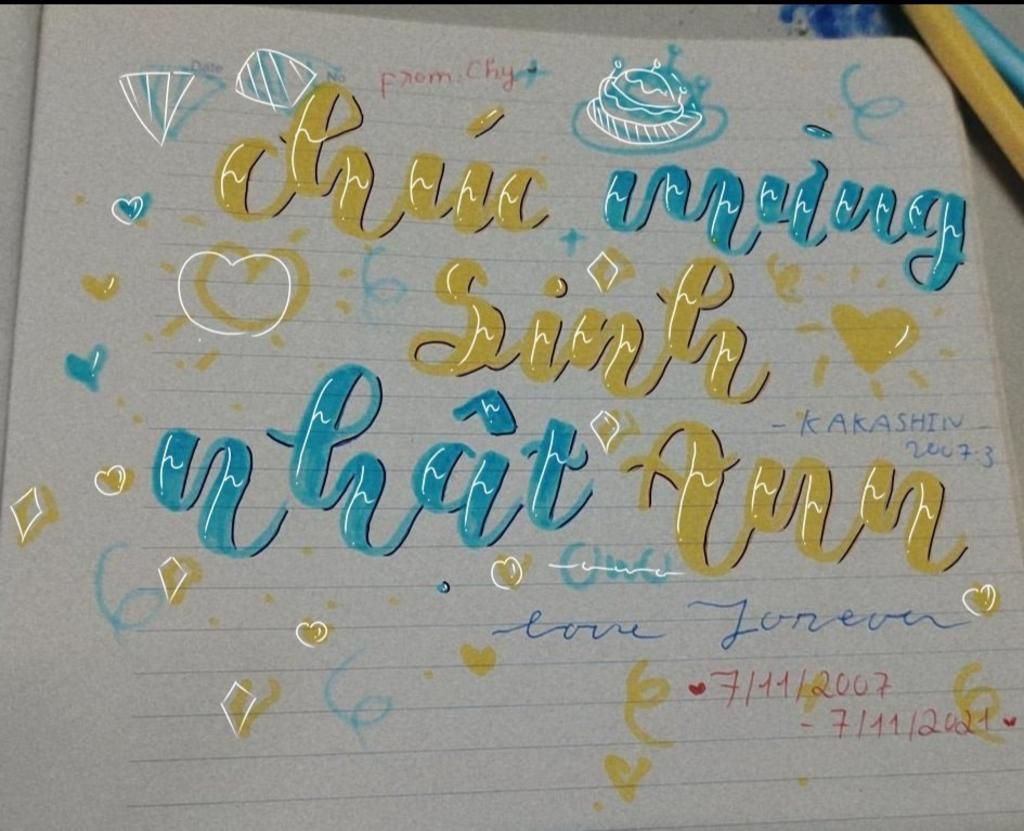 Date
No
From: Chy
chúc mừng
sinh
nhật Ann
- KAKASHIN -
2007.3
OwO
love Forever
7/11/2007
- 7/11/2021